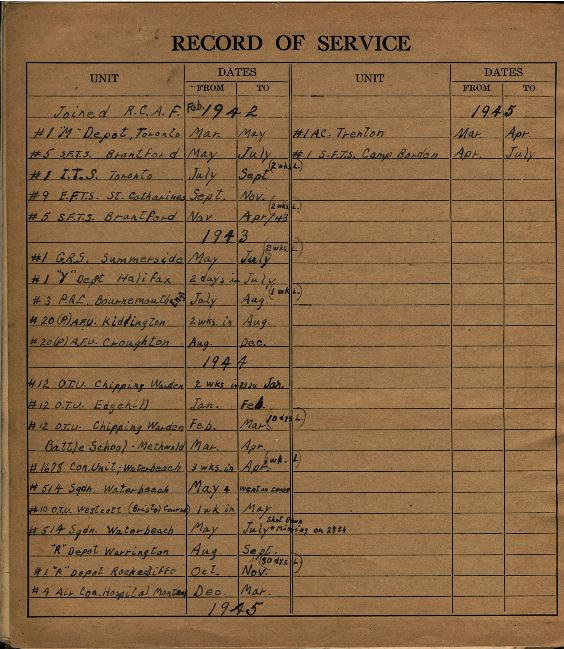 RECORD OF SERVICE
UNIT DATES FROM TO
Joined R.C.A.F. Feb. 1942
#1 "M" Depot, Toronto Mar. May
#5 S.F.T.S. Brantford May July (2 wks. L.)
#1 I.T.S. Toronto July Sept.
#9 E.F.T.S. St. Catharines Sept. Nov. (2 wks. L.)
#5 S.F.T.S. Brantford Nov. Apr/43
1943 (2 wks. L.)
#1 G.R.S. Summerside May July
#1 "Y" Dept Halifax 2 days in July (1 wk L.)
#3 P.R.C. Bournemouth Eng July Aug.
#20(P) A.F.U. Kiddington 2 wks. in Aug.
#20(P) A.F.U. Croughton Aug. Dec.
1944
#12 O.T.U. Chipping Warden 2 wks in Jan.
#12 O.T.U. Edgehill Jan. Feb.
#12 O.T.U. Chipping Warden Feb. Mar. (10 dys. L.)
Battle School - Methwold Mar. Apr.
#1678 Con. Unit, - Waterbeach 3 wks. in Apr. (1 wk. L)
#514 Sqdn. Waterbeach May & went on course
#10 O.T.U. Westcott (Bristol Course) 1 wk in May
#514 Sqdn. Waterbeach May July Shot Down + Missing on 28th
"R" Depot Warrington Aug Sept.
#1 "R" Depot Rockcliffe Oct. Nov. (30 dys. L)
#4 Air Con. Hospital Dec. Mar.
1945
UNIT DATES FROM TO
1945
#1 A.C. Trenton Mar. Apr.
#1 S.F.T.S. Camp Borden Apr. July